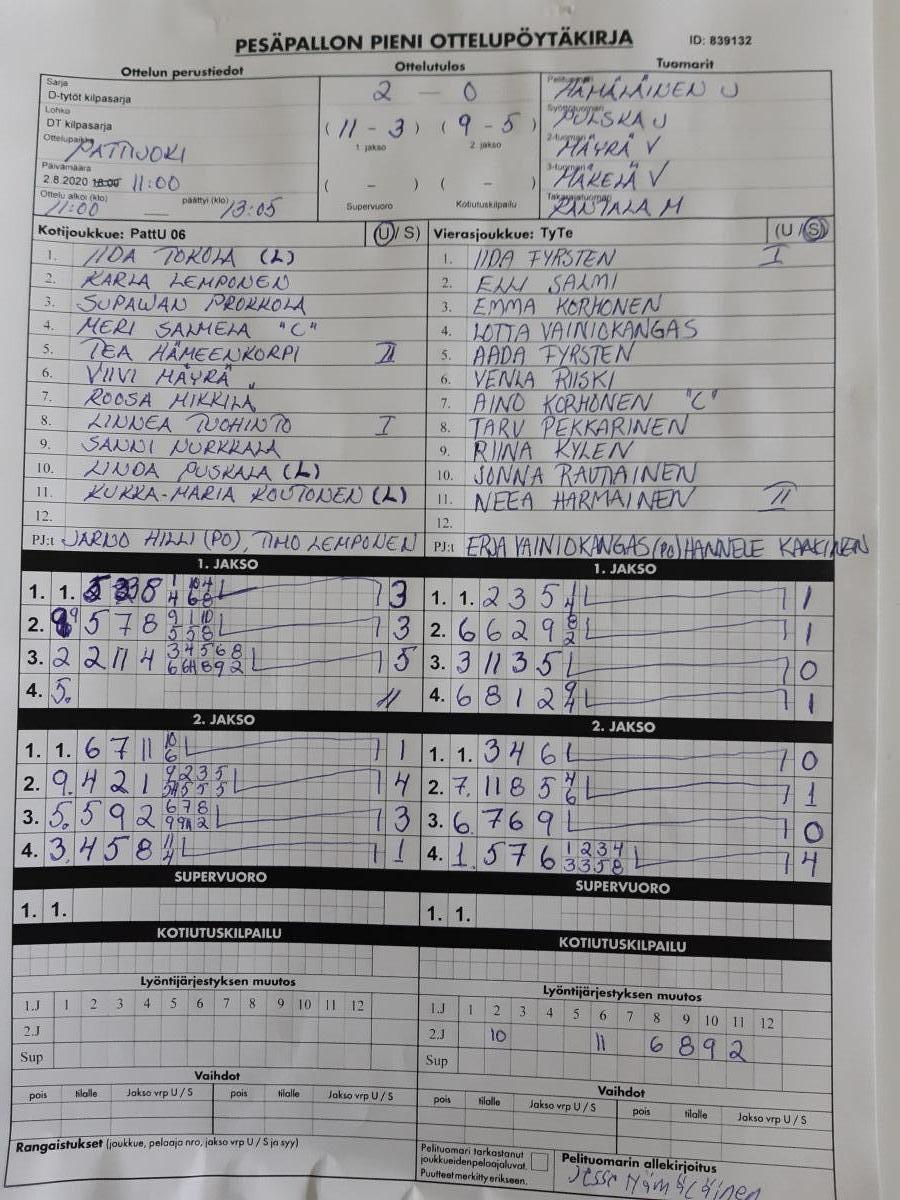 PESÄPALLON PIENI OTTELUPÖYTÄKIRJA ID: 839132
Ottelun perustiedot Ottelutulos Tuomarit
Sarja
D-tytöt kilpasarja
Lohko
DT kilpasarja
Ottelupaikka
PATTIJOKI
Päivämäärä
2.8.2020 18:00 11:00
Ottelu alkoi (klo) päättyi (klo)
11:00 13:05
2 - 0
(11 - 3) (9 - 5)
1. jakso 2. jakso
( - ) ( - )
Supervuoro Kotiutuskilpailu
Pelituomari
HÄMÄLÄINEN J
Syöttötuomari
PULSKA J
2-tuomari
MÄYRÄ V
3-tuomari
MÄKELÄ V
Takarajatuomari
RANTALA M
Kotijoukkue: PattU 06 (U / S)
1. IIDA TOKOLA (L)
2. KARLA LEMPONEN
3. SUPAWAN PROKKOLA
4. MERI SALMELA "C"
5. TEA HÄMEENKORPI II
6. VIIVI MÄYRÄ
7. ROOSA MIKKILÄ
8. LINNEA TUOHINTO I
9. SANNI NURKKALA
10. LINDA PUSKALA (L)
11. KUKKA-MARIA KOUTONEN (L)
12.
PJ:t JARNO HILLI (PO), TIMO LEMPONEN
Vierasjoukkue: TyTe (U / S)
1. IIDA FYRSTEN I
2. ELLI SALMI
3. EMMA KORHONEN
4. LOTTA VAINIOKANGAS
5. AADA FYRSTEN
6. VENLA RIISKI
7. AINO KORHONEN "C"
8. TARU PEKKARINEN
9. RIINA KYLEN
10. JONNA RAUTIAINEN
11. NEEA HARMAINEN II
12.
PJ:t ERJA VAINIOKANGAS (PO) HANNELE KAAKINEN
1. JAKSO
1. 1. 3
2. 5 7 8 3
3. 2 2 11 4 5
4. 5. 11
1. JAKSO
1. 1. 2 3 5 1
2. 6 6 2 9 1
3. 3 11 3 5 0
4. 6 8 1 2 1
2. JAKSO
1. 1. 6 7 11 10 6 1
2. 9. 4 2 1 4
3. 5. 5 9 2 3
4. 3. 4 5 8 1
2. JAKSO
1. 1. 3 4 6 0
2. 7. 11 8 5 4 6 1
3. 6. 7 6 9 0
4. 1. 5 7 6 1 2 3 4 3 3 5 8 4
SUPERVUORO
1. 1.
SUPERVUORO
1. 1.
KOTIUTUSKILPAILU
KOTIUTUSKILPAILU
Lyöntijärjestyksen muutos
1.J 1 2 3 4 5 6 7 8 9 10 11 12
2.J
Sup
Lyöntijärjestyksen muutos
1.J 1 2 3 4 5 6 7 8 9 10 11 12
2.J 10 11 6 8 9 2
Sup
Vaihdot
pois tilalle Jakso vrp U / S pois tilalle Jakso vrp U / S
Vaihdot
pois tilalle Jakso vrp U / S pois tilalle Jakso vrp U / S
Rangaistukset (joukkue, pelaaja nro, jakso vrp U / S ja syy)
Pelituomari tarkastanut
joukkueidenpelaajaluvat.
Puutteet merkitty erikseen.
Pelituomarin allekirjoitus
Jesse Hämäläinen